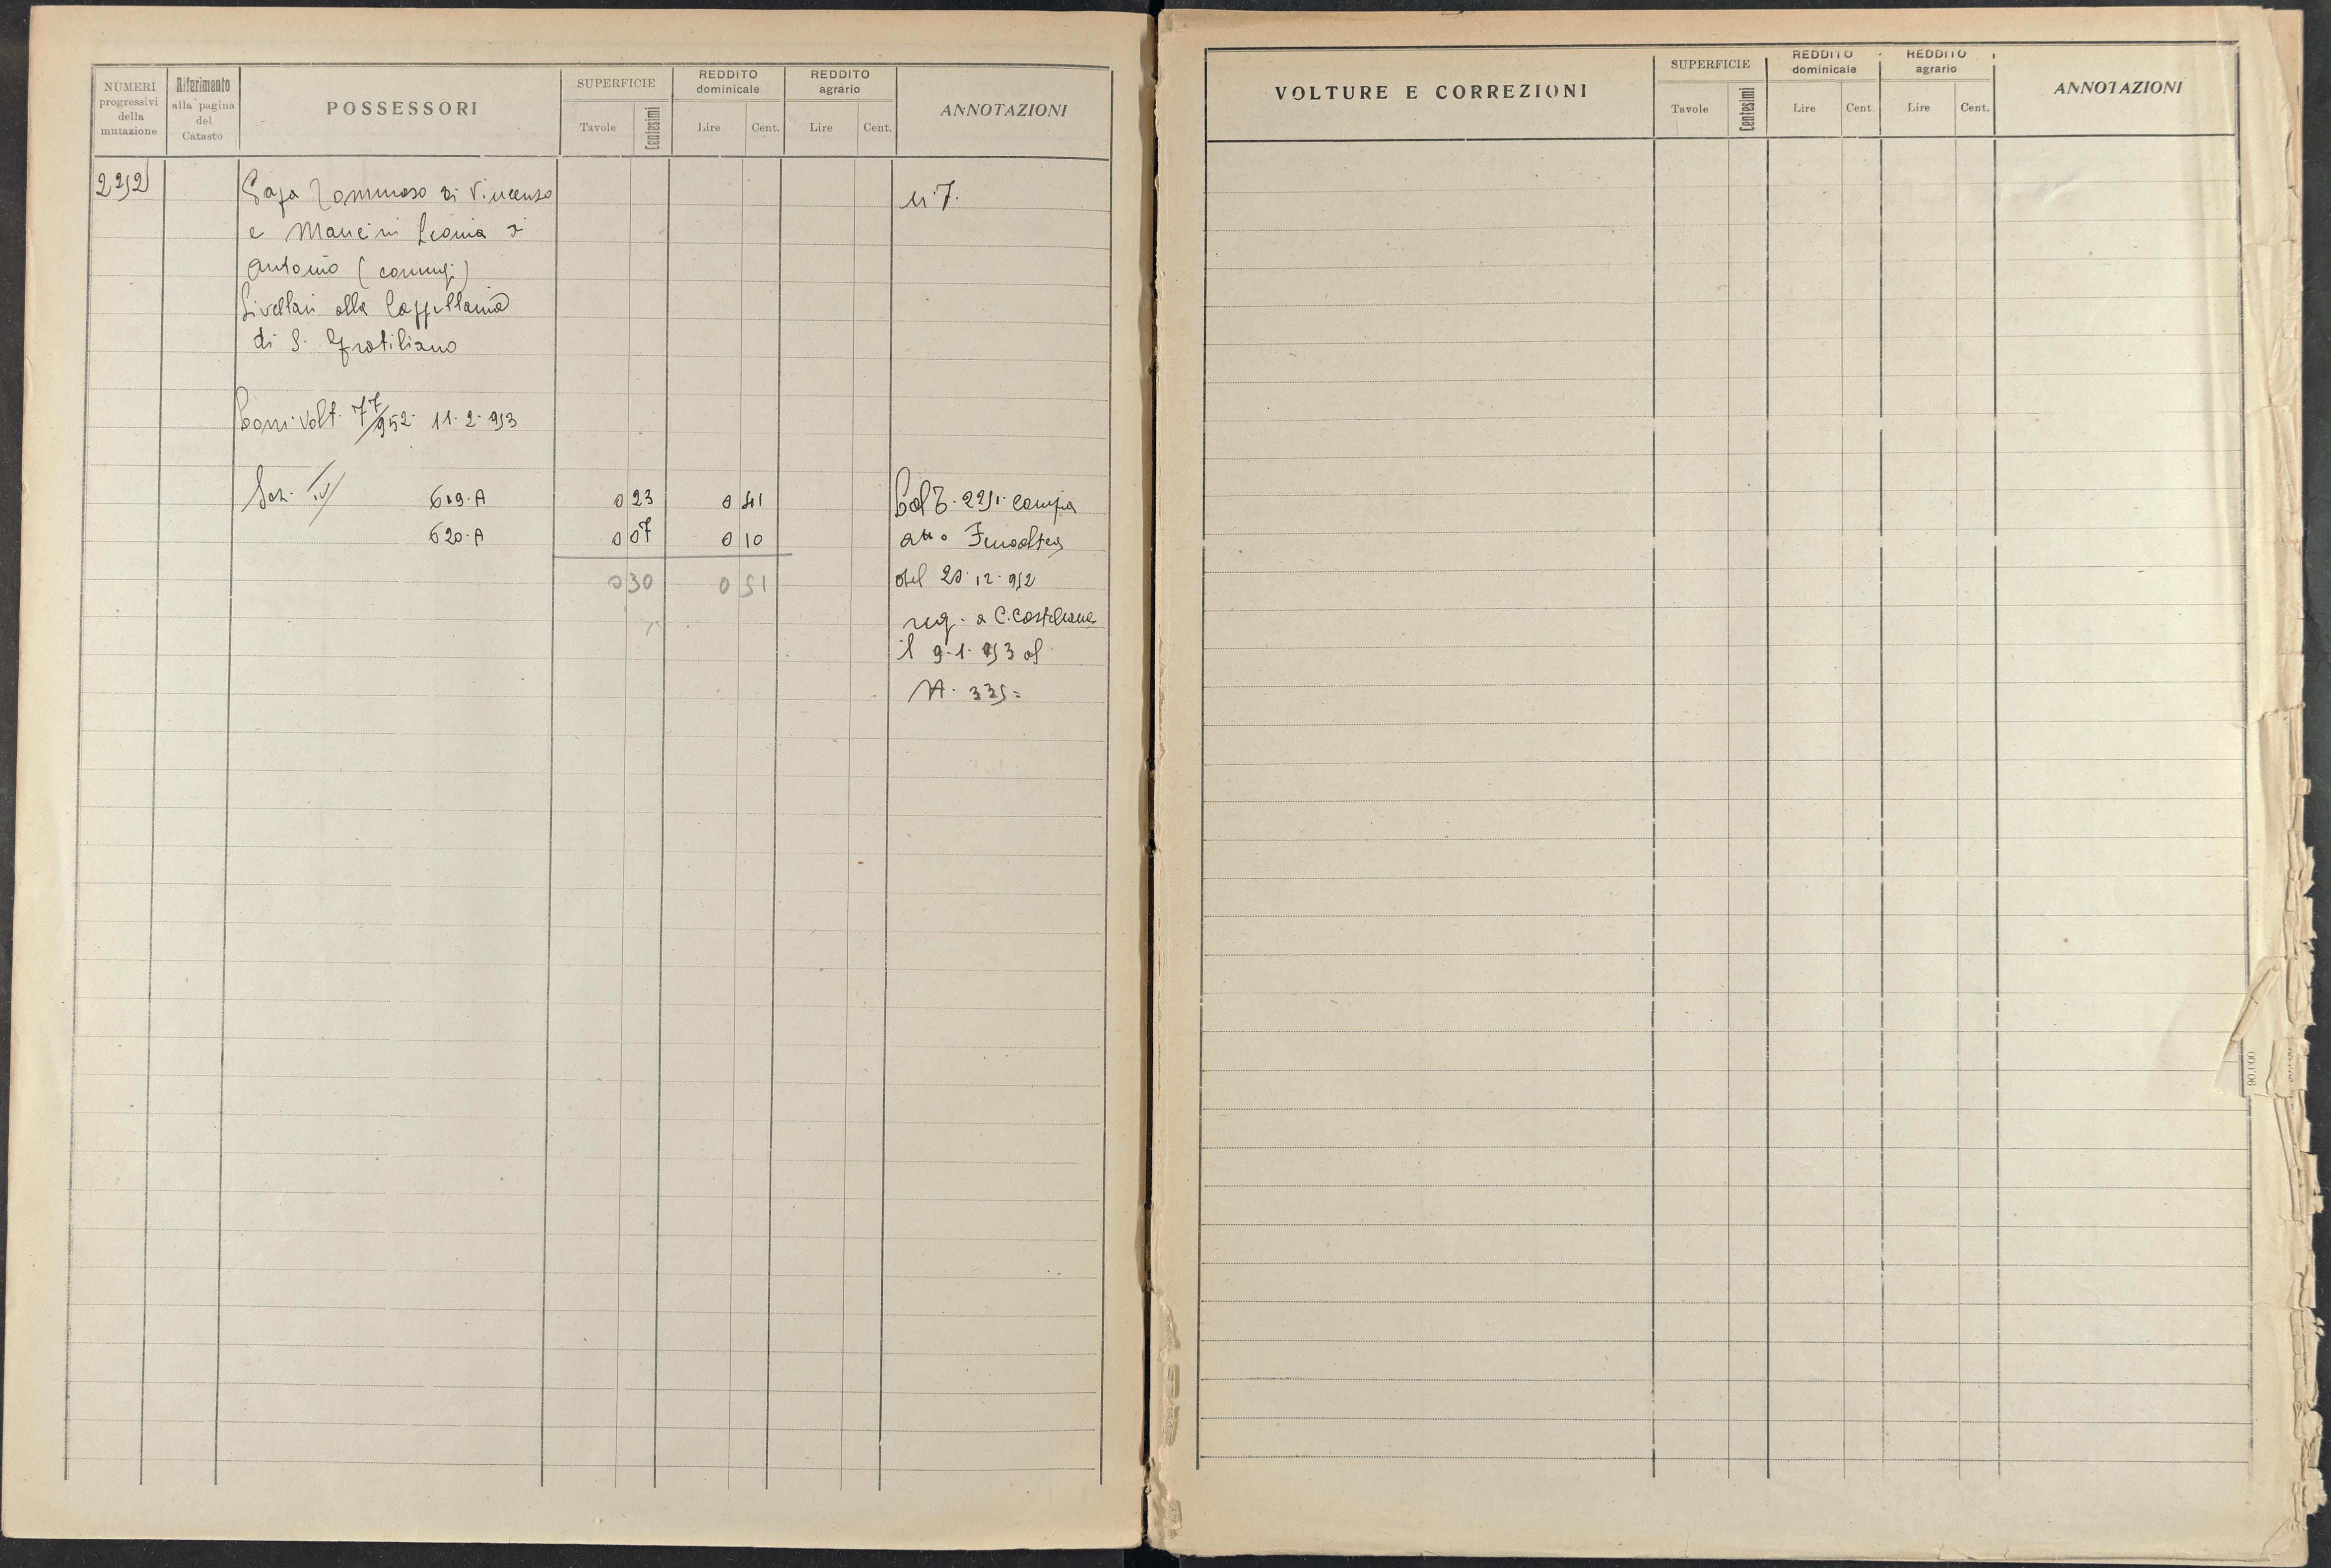 NUMERI progressivi della mutazione
Riferimento alla pagina del Catasto
POSSESSORI
SUPERFICIE
Tavole Centesimi
REDDITO dominicale
Lire Cent.
REDDITO agrario
Lire Cent.
ANNOTAZIONI
2252
Tommaso di Vincenzo
n. 7.
e Mancini
Antonio (coniugi)
Livellari alla Cappellania
di S. Gratiliano
volt. 77/952 11. 2. 953
Sez. IV 619. A 0 23 0 41
620. A 0 07 0 10
0 30 0 51
Dal T. 2251. compra
atto
del 20. 12. 952
reg. a C. Castellana
il 9. 1. 953 al
N. 335=
VOLTURE E CORREZIONI
SUPERFICIE
Tavole Centesimi
REDDITO dominicale
Lire Cent.
REDDITO agrario
Lire Cent.
ANNOTAZIONI